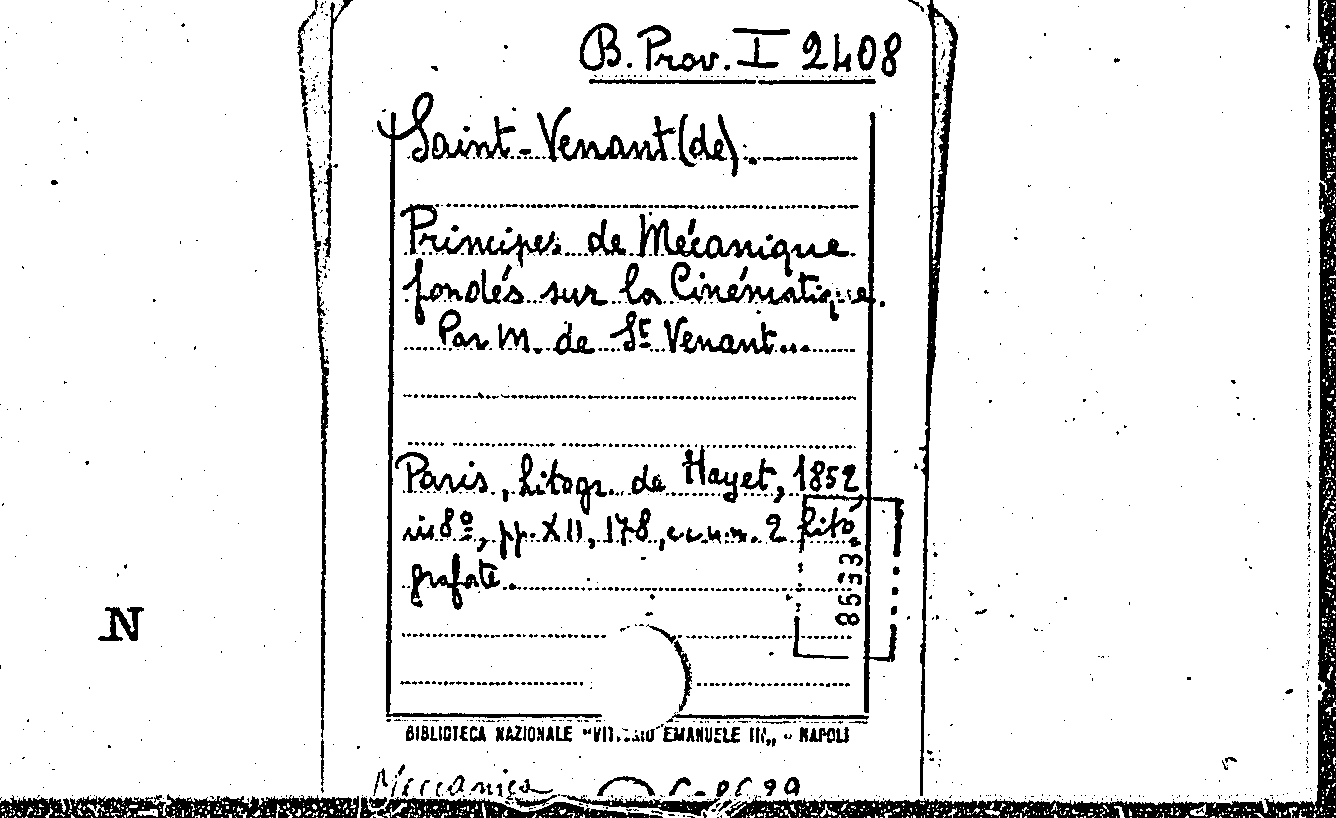 B. Prov. I 2408
Saint-Venant (de).
Principes de Mécanique
fondés sur la Cinématique.
Par M. de St Venant...
Paris, litogr. de Hayet, 1852
in 8º, pp. XII, 178, c. 2 lito,
grafate.
8553
N
BIBLIOTECA NAZIONALE "VITTORIO EMANUELE III" - NAPOLI
Meccanica